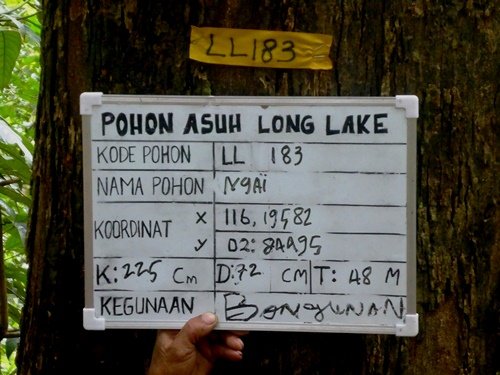 LL183
POHON ASUH LONG LAKE
KODE POHON LL 183
NAMA POHON NGAI
KOORDINAT X 116,19582
y 02:84495
K:225 Cm D:72 CM T: 48 M
KEGUNAAN BANGUNAN